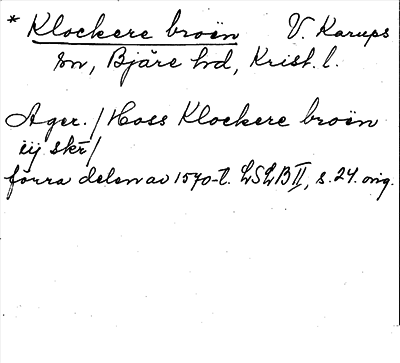 * Klockere broën V. Karups
sn, Bjäre hd, Krist. l.
Ager. / Hoss Klockere broën
iij skr /
förra delen av 1570-t. LSLB II, s. 24. orig.